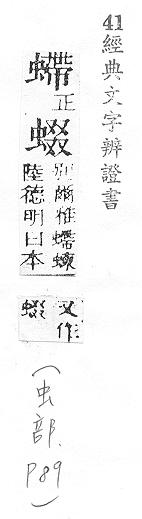 41 經典文字辨證書
螮正
蝃
別爾雅螮蝀
陸德明曰本
又作
蝃
(虫部. P89)